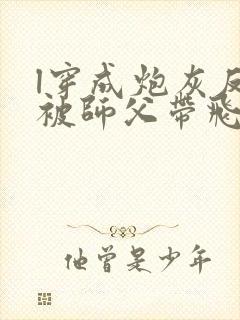 穿成炮灰反
被師父帶飛
他曾是少年